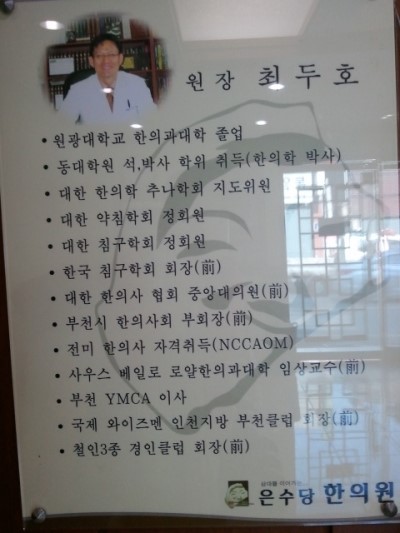 원장 최두호
• 원광대학교 한의과대학 졸업
• 동대학원 석,박사 학위 취득(한의학 박사)
• 대한 한의학 추나학회 지도위원
• 대한 약침학회 정회원
• 대한 침구학회 정회원
• 한국 침구학회 회장(前)
• 대한 한의사 협회 중앙대의원(前)
• 부천시 한의사회 부회장(前)
• 전미 한의사 자격취득(NCCAOM)
• 사우스 베일로 로얄한의과대학 임상교수(前)
• 부천 YMCA 이사
• 국제 와이즈멘 인천지방 부천클럽 회장(前)
• 철인3종 경인클럽 회장(前)
은수당 한의원